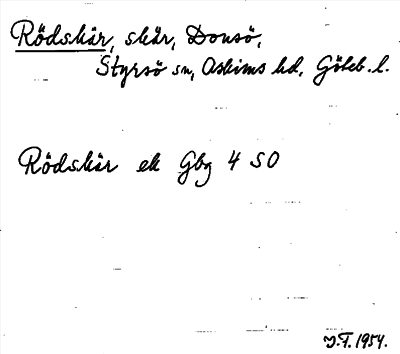 Rödskär, skär, Donsö,
Styrsö sn, Askims hd, Göteb. l.
Rödskär ek Gbg 4 SO
J.F. 1954.